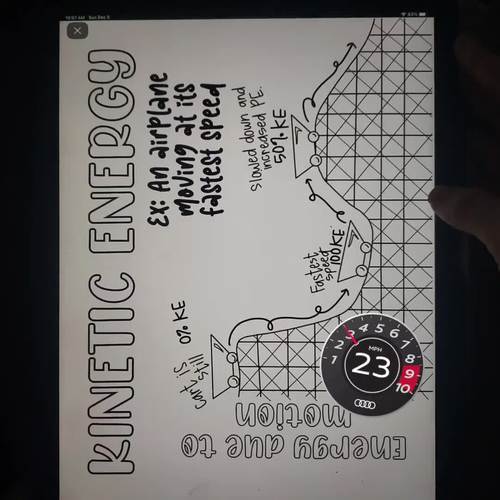 10:57 AM Sun Dec 5
83%
KINETIC ENERGY
EX: An airplane
moving at its
fastest speed
Energy due to
motion
cart is
still
0% KE
Fastest
speed
100 KE
slowed down and
increased PE.
50% KE
1 2 3 4 5 6 7 8 9 10
MPH
23